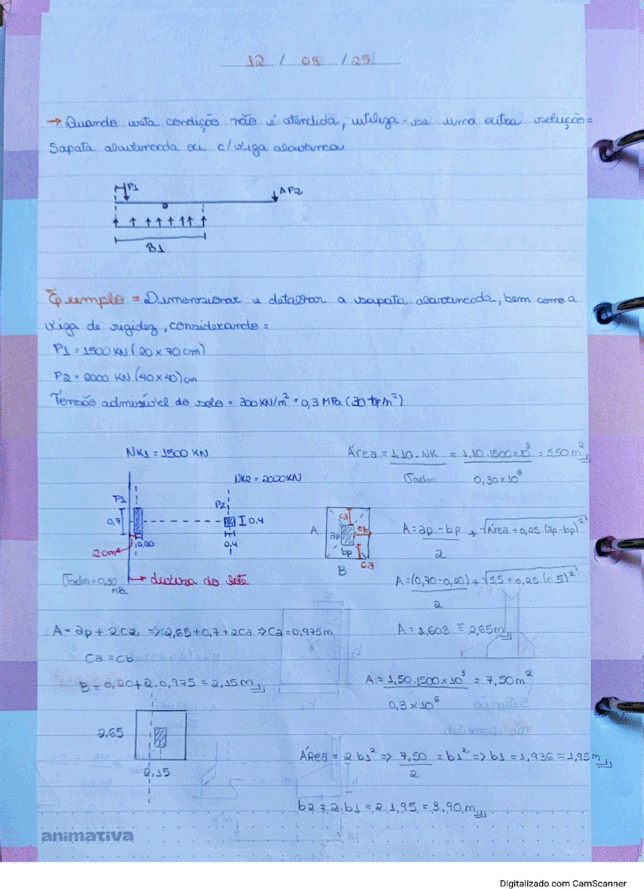 12 / 08 / 25
→ Quando esta condição não é atendida, utiliza-se uma outra solução =
Sapata alavancada ou c/ viga alavanca
P1
ΔP2
B1
Exemplo = Dimensionar e detalhar a sapata alavancada, bem como a
viga de rigidez, considerando =
P1 = 1500 KN (20 x 70 cm)
P2 = 2000 KN (40 x 40) cm
Tensão admissível do solo = 300 KN/m² = 0,3 MPa (30 tf/m²)
NK1 = 1500 KN
Área = 1,10 . NK = 1,10 . 1500 x 10³ = 5,50 m²
σadm 0,30 x 10⁶
NK2 = 2000KN
P1
P2
0,7
0,4
0,20
0,4
2cm
σadm = 0,30 MPa
→ divisa do lote
A
ca
cb
ap
bp
ca
B
A = ap - bp + √Área + 0,25 (ap - bp)²
2
A = (0,70 - 0,20) + √5,5 + 0,25 (0,5)²
2
A = ap + 2ca => 2,65 = 0,7 + 2ca => Ca = 0,975m
A = 2,608 ≅ 2,65m
Ca = cb
B = 0,20 + 2 . 0,975 = 2,15m
A = 1,50 . 1500 x 10³ = 7,50 m²
0,3 x 10⁶
2,65
2,15
Área = 2 b1² => 7,50 = b1² => b1 = 1,936 = 1,95m
2
b2 = 2 . b1 = 2 . 1,95 = 3,90m
animativa
Digitalizado com CamScanner